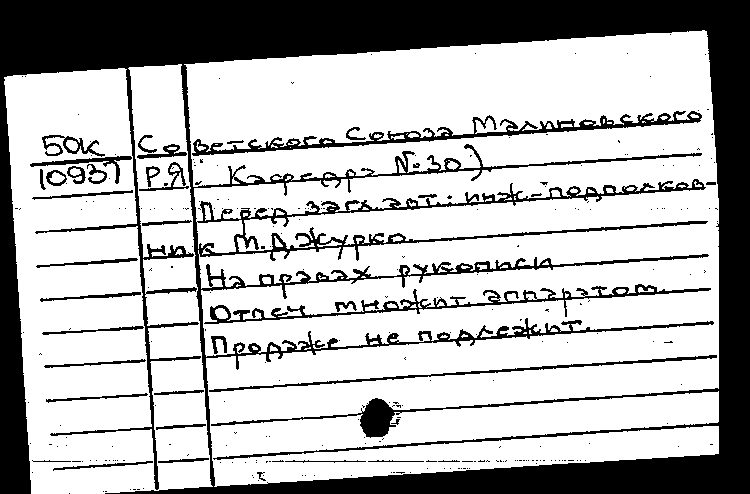 50к Советского Союза Малиновского
10937 Р.Я. Кафедра №30)
Перед загл. авт.: инж.-подполков-
ник М.Д. Журко.
На правах рукописи
Отпеч множит. аппаратом.
Продаже не подлежит.